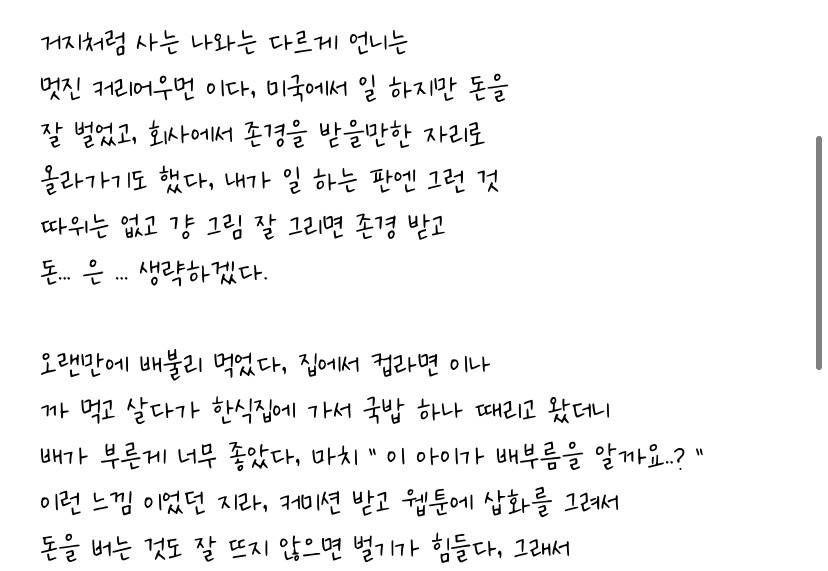 거지처럼 사는 나와는 다르게 언니는
멋진 커리어우먼 이다, 미국에서 일 하지만 돈을
잘 벌었고, 회사에서 존경을 받을만한 자리로
올라가기도 했다, 내가 일 하는 판엔 그런 것
따위는 없고 걍 그림 잘 그리면 존경 받고
돈... 은 ... 생략하겠다.
오랜만에 배불리 먹었다, 집에서 컵라면 이나
까 먹고 살다가 한식집에 가서 국밥 하나 때리고 왔더니
배가 부른게 너무 좋았다, 마치 " 이 아이가 배부름을 알까요..? "
이런 느낌 이었던 지라, 커미션 받고 웹툰에 삽화를 그려서
돈을 버는 것도 잘 뜨지 않으면 벌기가 힘들다, 그래서